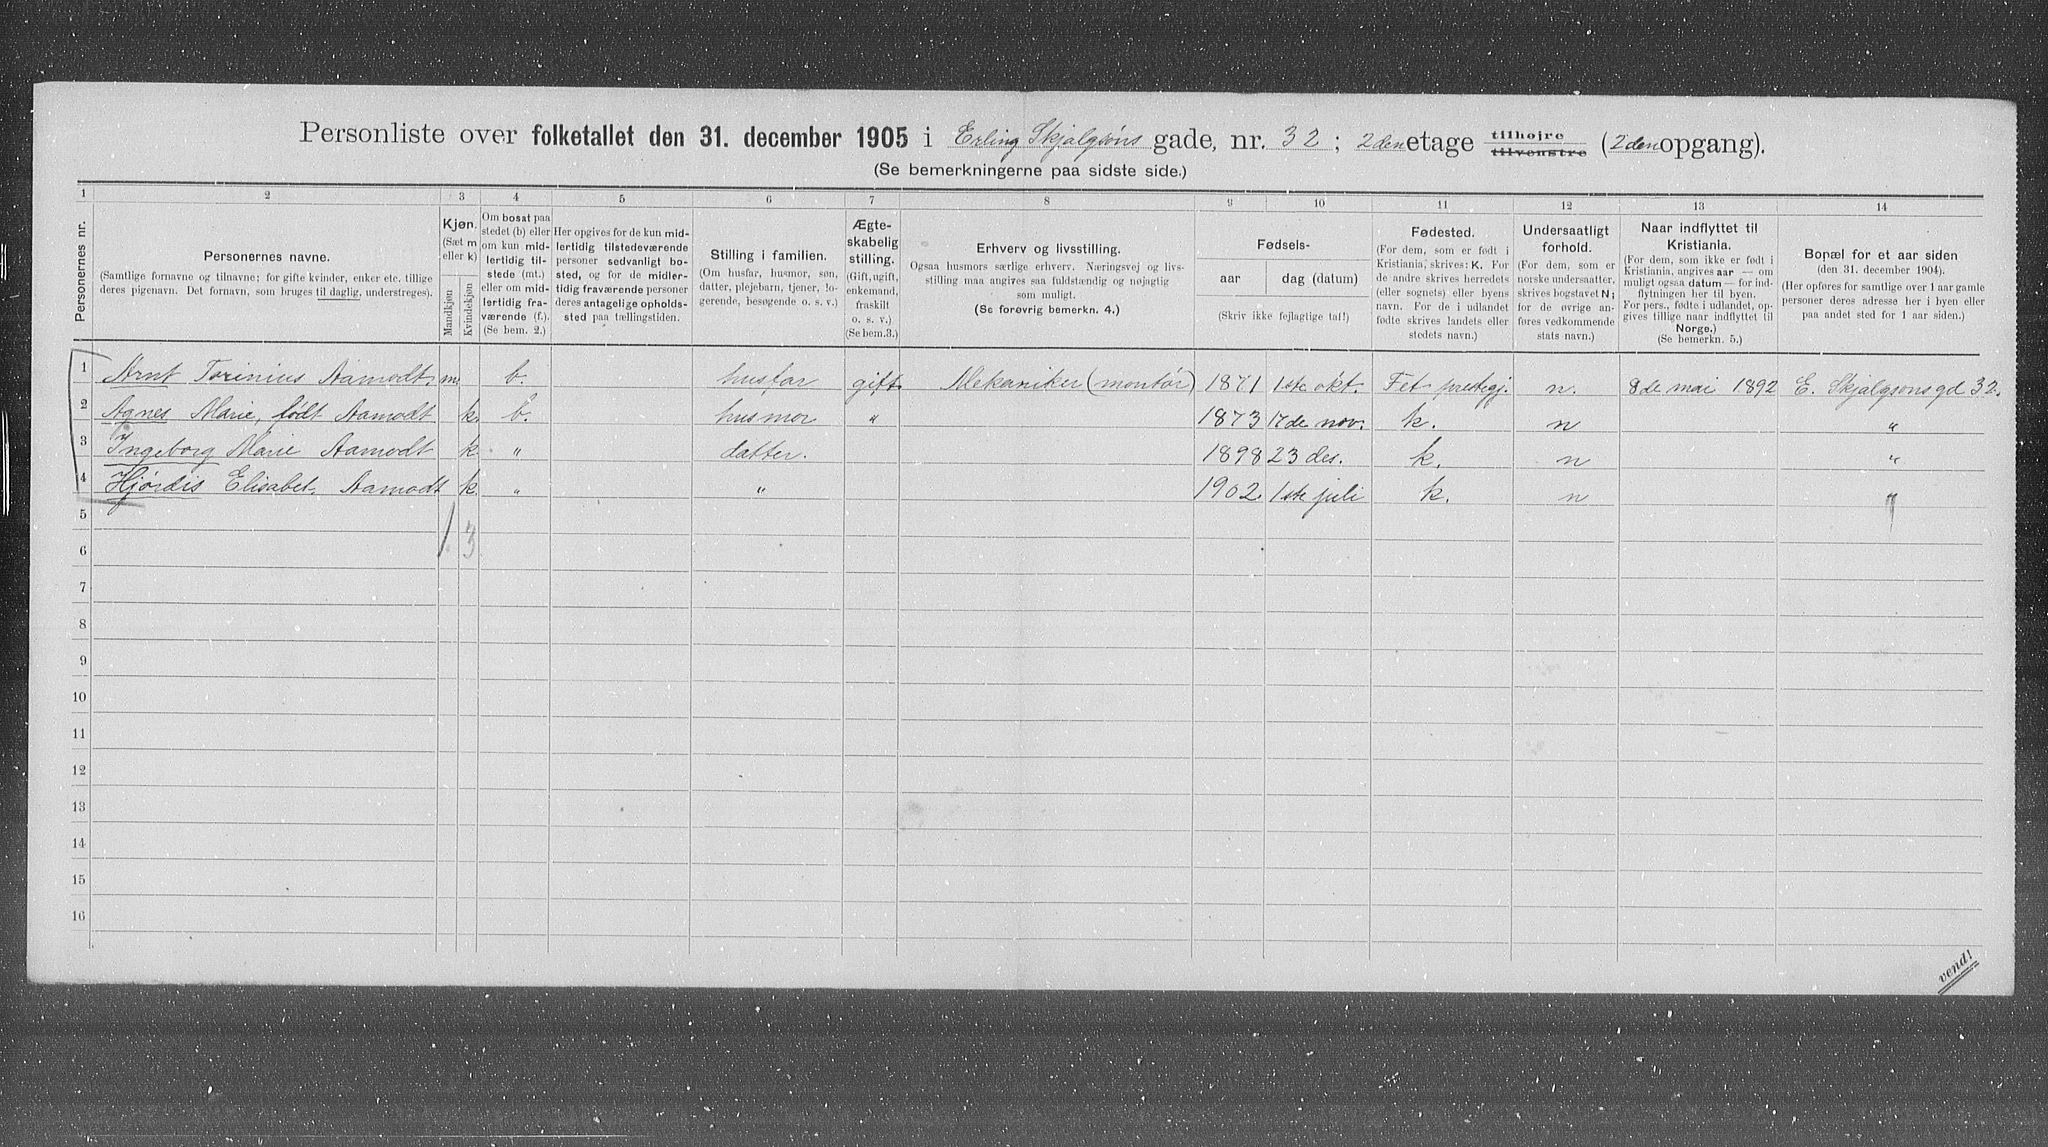 Personliste over folketallet den 31. december 1905 i Erling Skjalgsöns gade, nr. 32 ; 2den etage tilhøjre tilvenstre (2den opgang).
(Se bemerkningerne paa sidste side.)
1 2 3 4 5 6 7 8 9 10 11 12 13 14
Personernes nr.
Personernes navne.
(Samtlige fornavne og tilnavne; for gifte kvinder, enker etc. tillige
deres pigenavn. Det fornavn, som bruges til daglig, understreges).
Kjøn.
(Sæt m
eller k)
Mandkjøn
Kvindekjøn
Om bosat paa
stedet (b) eller
om kun mid-
lertidig til-
stede (mt.)
eller om mid-
lertidig fra-
værende (f.).
(Se bem. 2.)
Her opgives for de kun mid-
lertidig tilstedeværende
personer sedvanlig bo-
sted, og for de midler-
tidig fraværende personer
deres antagelige opholds-
sted paa tællingstiden.
Stilling i familien.
(Om husfar, husmor, søn,
datter, plejebarn, tjener, lo-
gerende, besøgende o. s. v.)
Ægte-
skabelig
stilling.
(Gift, ugift,
enkemand,
fraskilt
o. s. v.)
(Se bem.3.)
Erhverv og livsstilling.
Ogsaa husmors særlige erhverv. Næringsvej og livs-
stilling maa angives saa fuldstændig og nøjagtig
som muligt.
(Se forøvrig bemerkn. 4.)
Fødsels-
aar dag (datum)
(Skriv ikke fejlagtige tal!)
Fødested.
(For dem, som er født i
Kristiania, skrives: K. For
de andre skrives herredets
(eller sognets) eller byens
navn. For de i udlandet
fødte skrives landets eller
stedets navn.)
Undersaatligt
forhold.
(For dem, som er
norske undersaatter,
skrives bogstavet N;
for de øvrige an-
føres vedkommende
stats navn.)
Naar indflyttet til
Kristiania.
(For dem, som ikke er født i
Kristiania, angives aar — om
muligt ogsaa datum — for ind-
flytningen her til byen.
For pers., fødte i udlandet, op-
gives tillige naar indflyttet til
Norge.)
(Se bemerkn. 5.)
Bopæl for et aar siden
(den 31. december 1904).
(Her opføres for samtlige over 1 aar gamle
personer deres adresse her i byen eller
paa andet sted for 1 aar siden.)
1 Arnt Torinius Aamodt. m. b. husfar gift Mekaniker (montør) 1871 1ste okt. Fet prestegj. n. 8de mai 1892 E. Skjalgsons gd 32.
2 Agnes Marie, født Aamodt k. b. husmor " 1873 17de nov. k. n "
3 Ingeborg Marie Aamodt k. " datter. 1898 23 des. k. n "
4 Hjørdis Elisabet. Aamodt k. " " 1902. 1ste juli k. n "
5 1 3
6
7
8
9
10
11
12
13
14
15
16
vend!